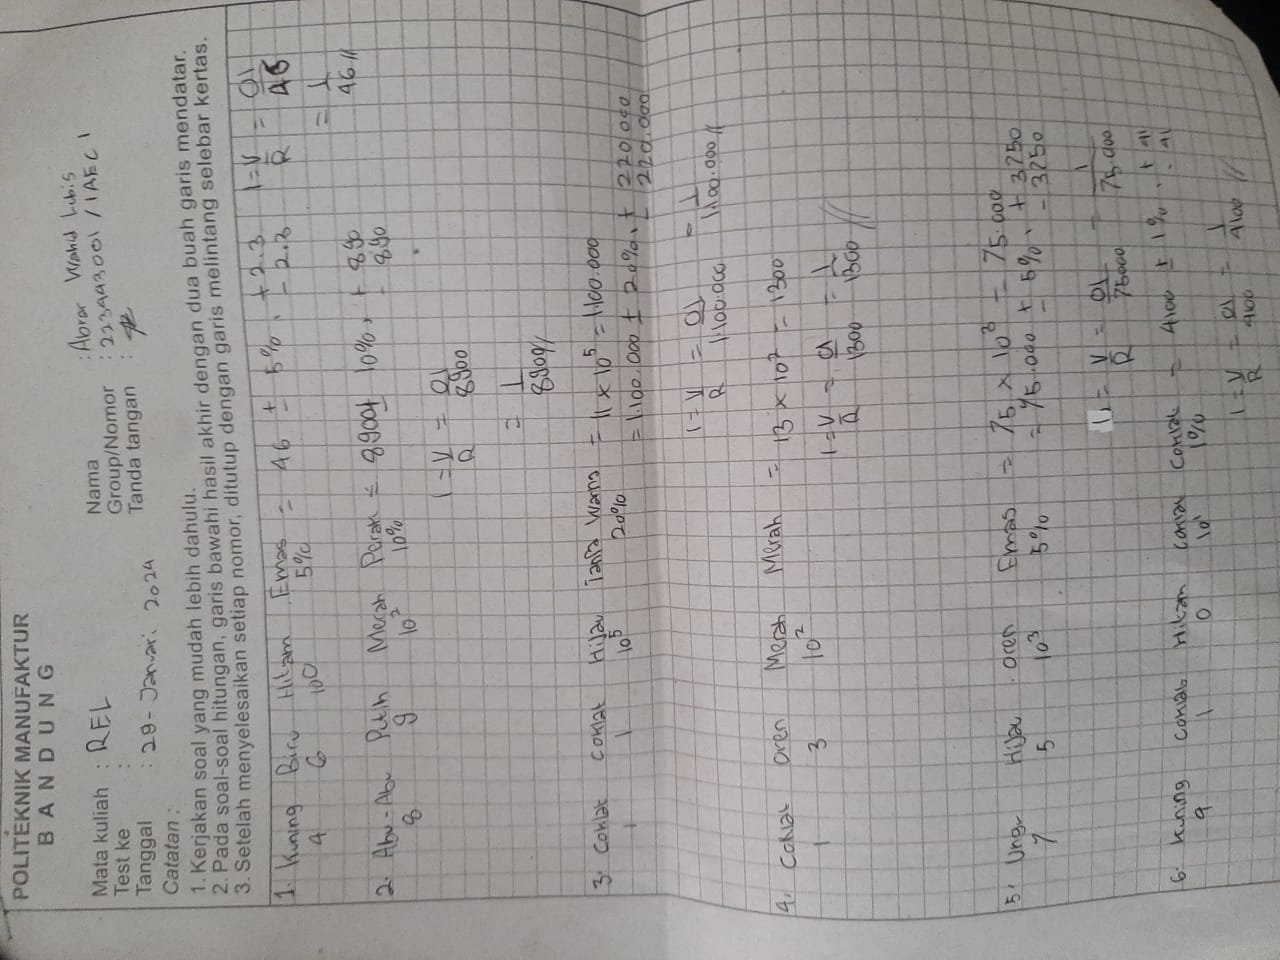 POLITEKNIK MANUFAKTUR
BANDUNG
Mata kuliah : REL
Test ke :
Tanggal : 29 - Januari 2024
Nama : Abrar Wahid Lubis
Group/Nomor : 223443001 / 1AEC1
Tanda tangan :
Catatan :
1. Kerjakan soal yang mudah lebih dahulu.
2. Pada soal-soal hitungan, garis bawahi hasil akhir dengan dua buah garis mendatar.
3. Setelah menyelesaikan setiap nomor, ditutup dengan garis melintang selebar kertas.
1. Kuning Biru Hitam Emas = 46 ± 5% . + 2.3 - 2.3 I = V/R = 01/46
4 6 10⁰ 5%
= 1/46 //
2. Abu-Abu Putih Merah Perak = 8900 ± 10% , + 890 - 890
8 9 10² 10%
I = V/R = 01/8900
= 1/8900 //
3. Coklat Coklat Hijau Tanpa Warna = 11 × 10⁵ = 1.100.000
1 1 10⁵ 20%
= 1.100.000 ± 20% , + 220.000 - 220.000
I = V/R = 01/1.100.000 = 1/1.100.000 //
4. Coklat Oren Merah Merah = 13 × 10² = 1300
1 3 10²
I = V/R = 01/1300 = 1/1300 //
5. Ungu Hijau Oren Emas = 75 × 10³ = 75.000
7 5 10³ 5%
= 75.000 ± 5% , + 3750 - 3750
= V/R = 01/75000 = 1/75.000
6. Kuning Coklat Hitam Coklat Coklat = 4100 ± 1% . + 41 - 41
4 1 0 10¹ 1%
I = V/R = 01/4100 = 1/4100 //